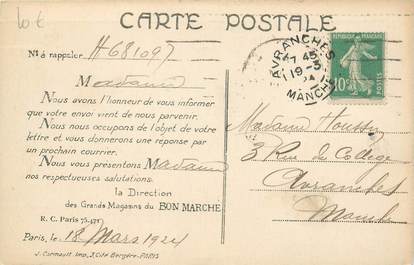 10 €
CARTE POSTALE
Nº à rappeler H 681097
Madame
Nous avons l'honneur de vous informer
que votre envoi vient de nous parvenir.
Nous nous occupons de l'objet de votre
lettre et vous donnerons une réponse par
un prochain courrier.
Nous vous présentons Madame
nos respectueuses salutations.
la Direction
des Grands Magasins du BON MARCHE
R. C. Paris 75.471
Paris, le 18 Mars 1924
J. Cormault. Imp, 3, Cité Bergère. PARIS
AVRANCHES
7 45
19 - 3
24
MANCHE
REPUBLIQUE FRANÇAISE
10
Madame Houssin
3 Rue du Collège
Avranches
Manche